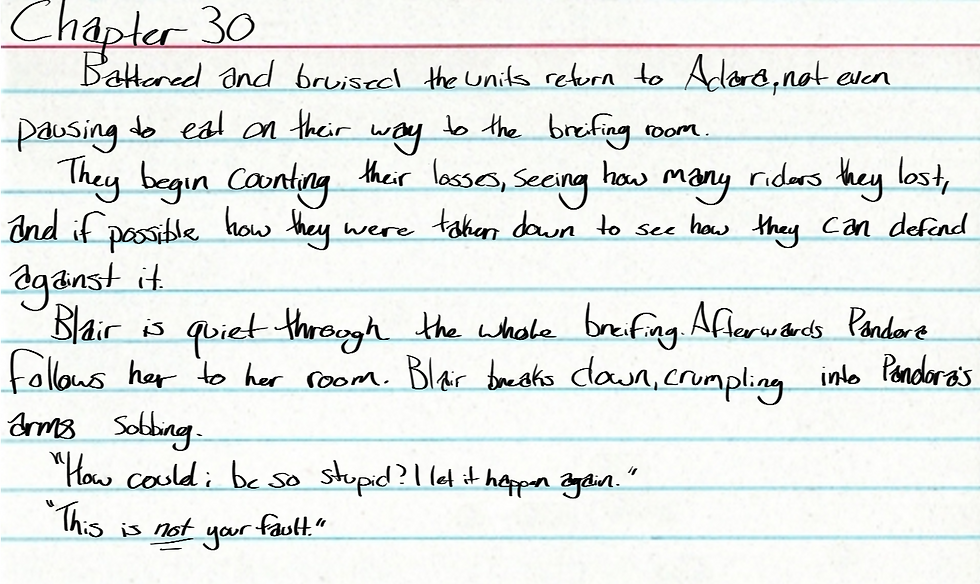 Chapter 30
Battered and bruised the units return to Adara, not even
pausing to eat on their way to the breifing room.
They begin counting their losses, seeing how many riders they lost,
and if possible how they were taken down to see how they can defend
against it.
Blair is quiet through the whole breifing. Afterwards Pandora
follows her to her room. Blair breaks down, crumpling into Pandora's
arms sobbing.
"How could i be so stupid? I let it happen again."
"This is not your fault."